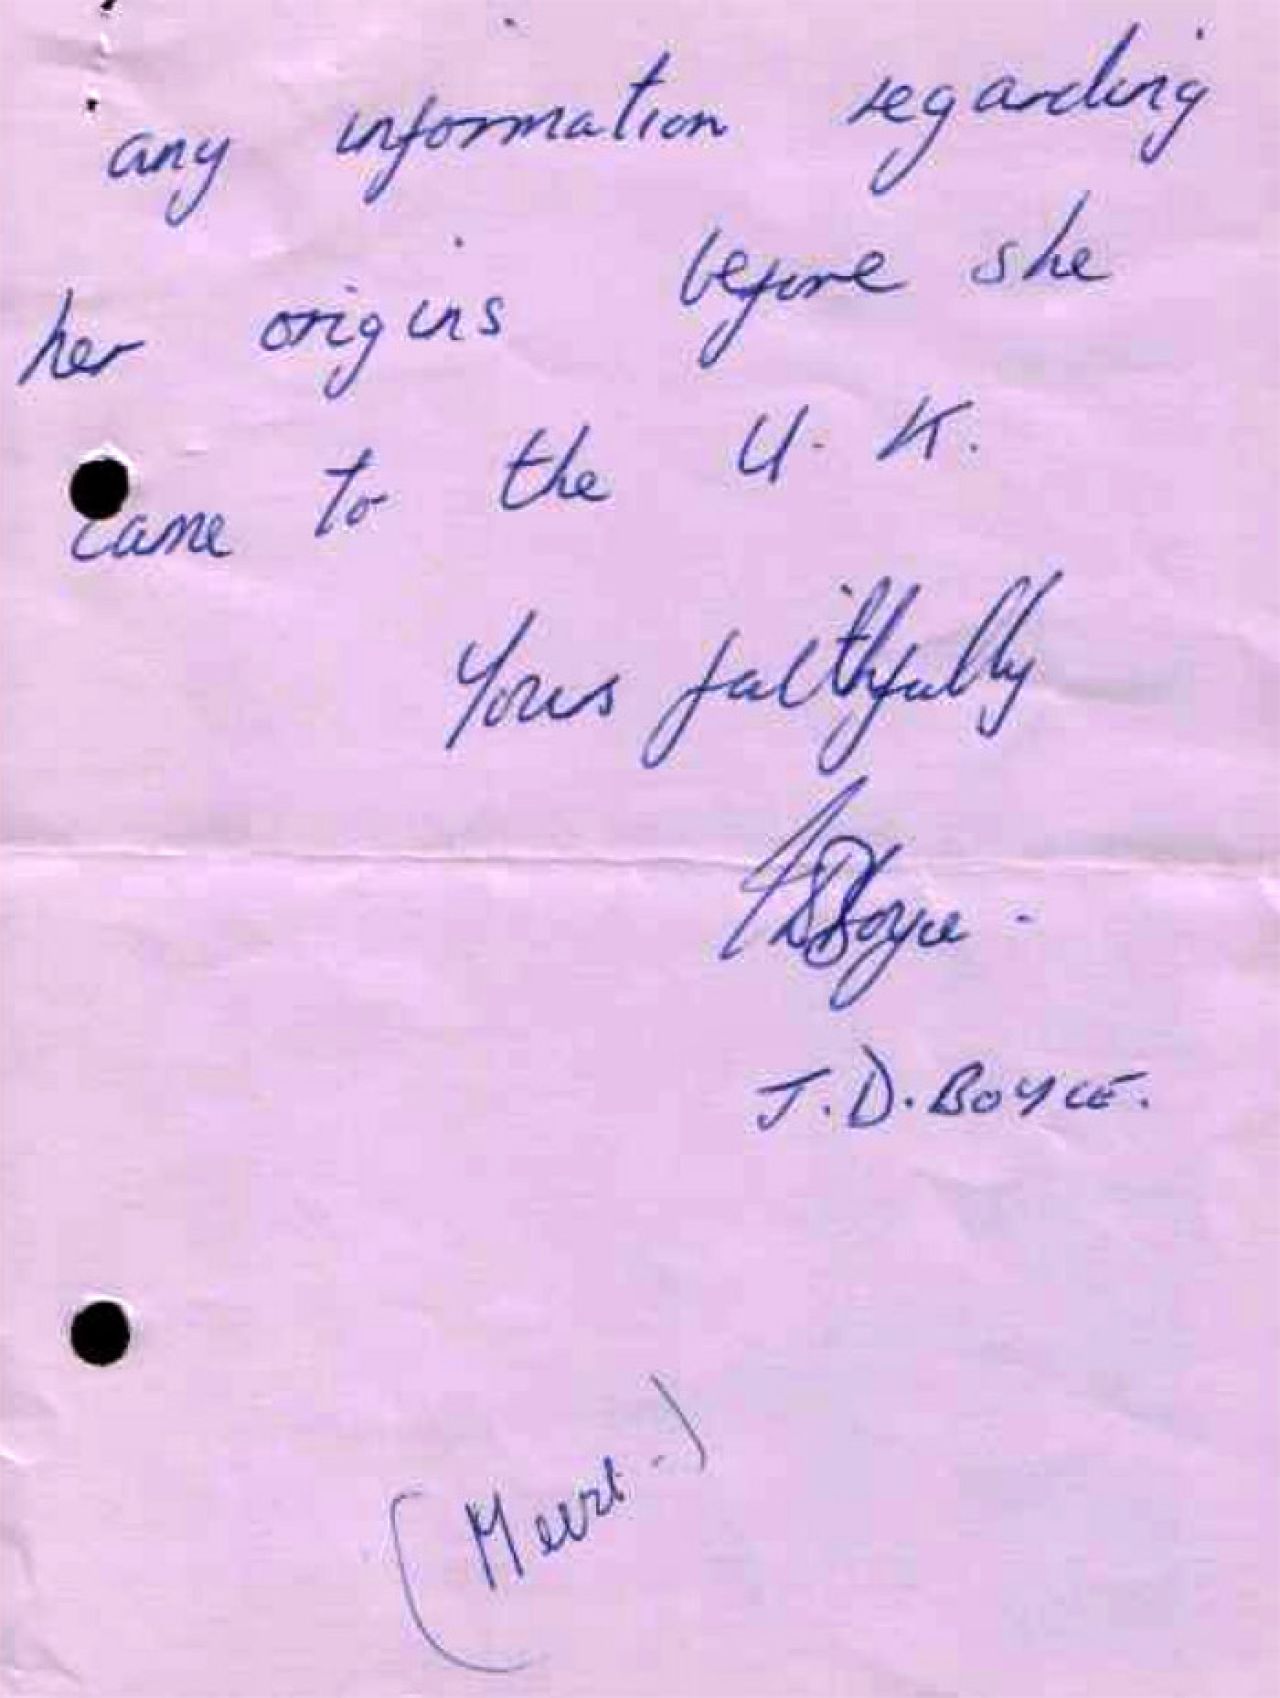 any information regarding
her origins before she
came to the U. K.
Yours faithfully
JDBoyce.
J. D. BOYCE.